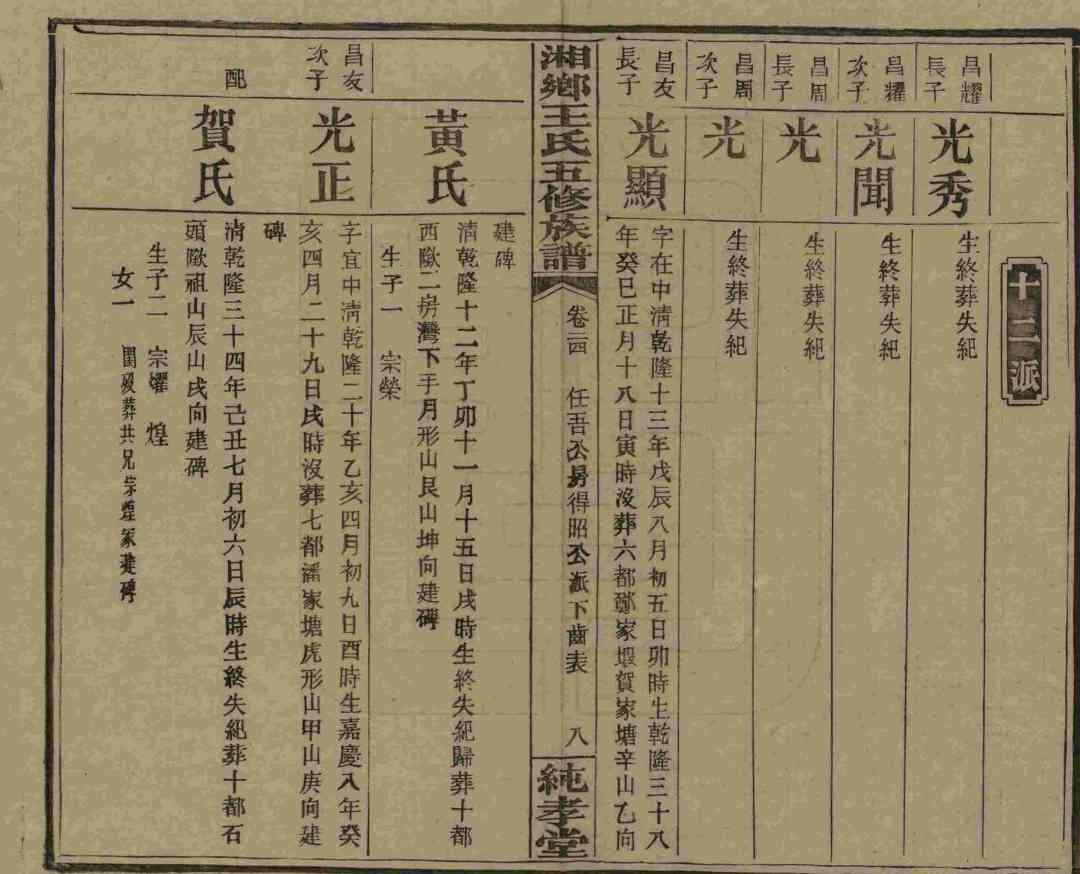 十二派
昌耀
長子
光秀
生終葬失紀
昌耀
次子
光聞
生終葬失紀
昌周
長子
光
生終葬失紀
昌周
次子
光
生終葬失紀
昌友
長子
光顯
字在中清乾隆十三年戊辰八月初五日卯時生乾隆三十八
年癸巳正月十八日寅時沒葬六都鄭家塅賀家塘辛山乙向
湘鄉王氏五修族譜
卷二四
任吾公房得昭公派下齒表
八
純孝堂
建碑
黃氏
清乾隆十二年丁卯十一月十五日戌時生終失紀歸葬十都
西歐二房灣下手月形山艮山坤向建碑
生子一 宗榮
昌友
次子
光正
字宜中清乾隆二十年乙亥四月初九日酉時生嘉慶八年癸
亥四月二十九日戌時沒葬七都潘家塘虎形山甲山庚向建
碑
配
賀氏
清乾隆三十四年己丑七月初六日辰時生終失紀葬十都石
頭歐祖山辰山戌向建碑
生子二 宗燿 煌
女一 葬共兄宗煌冢建碑